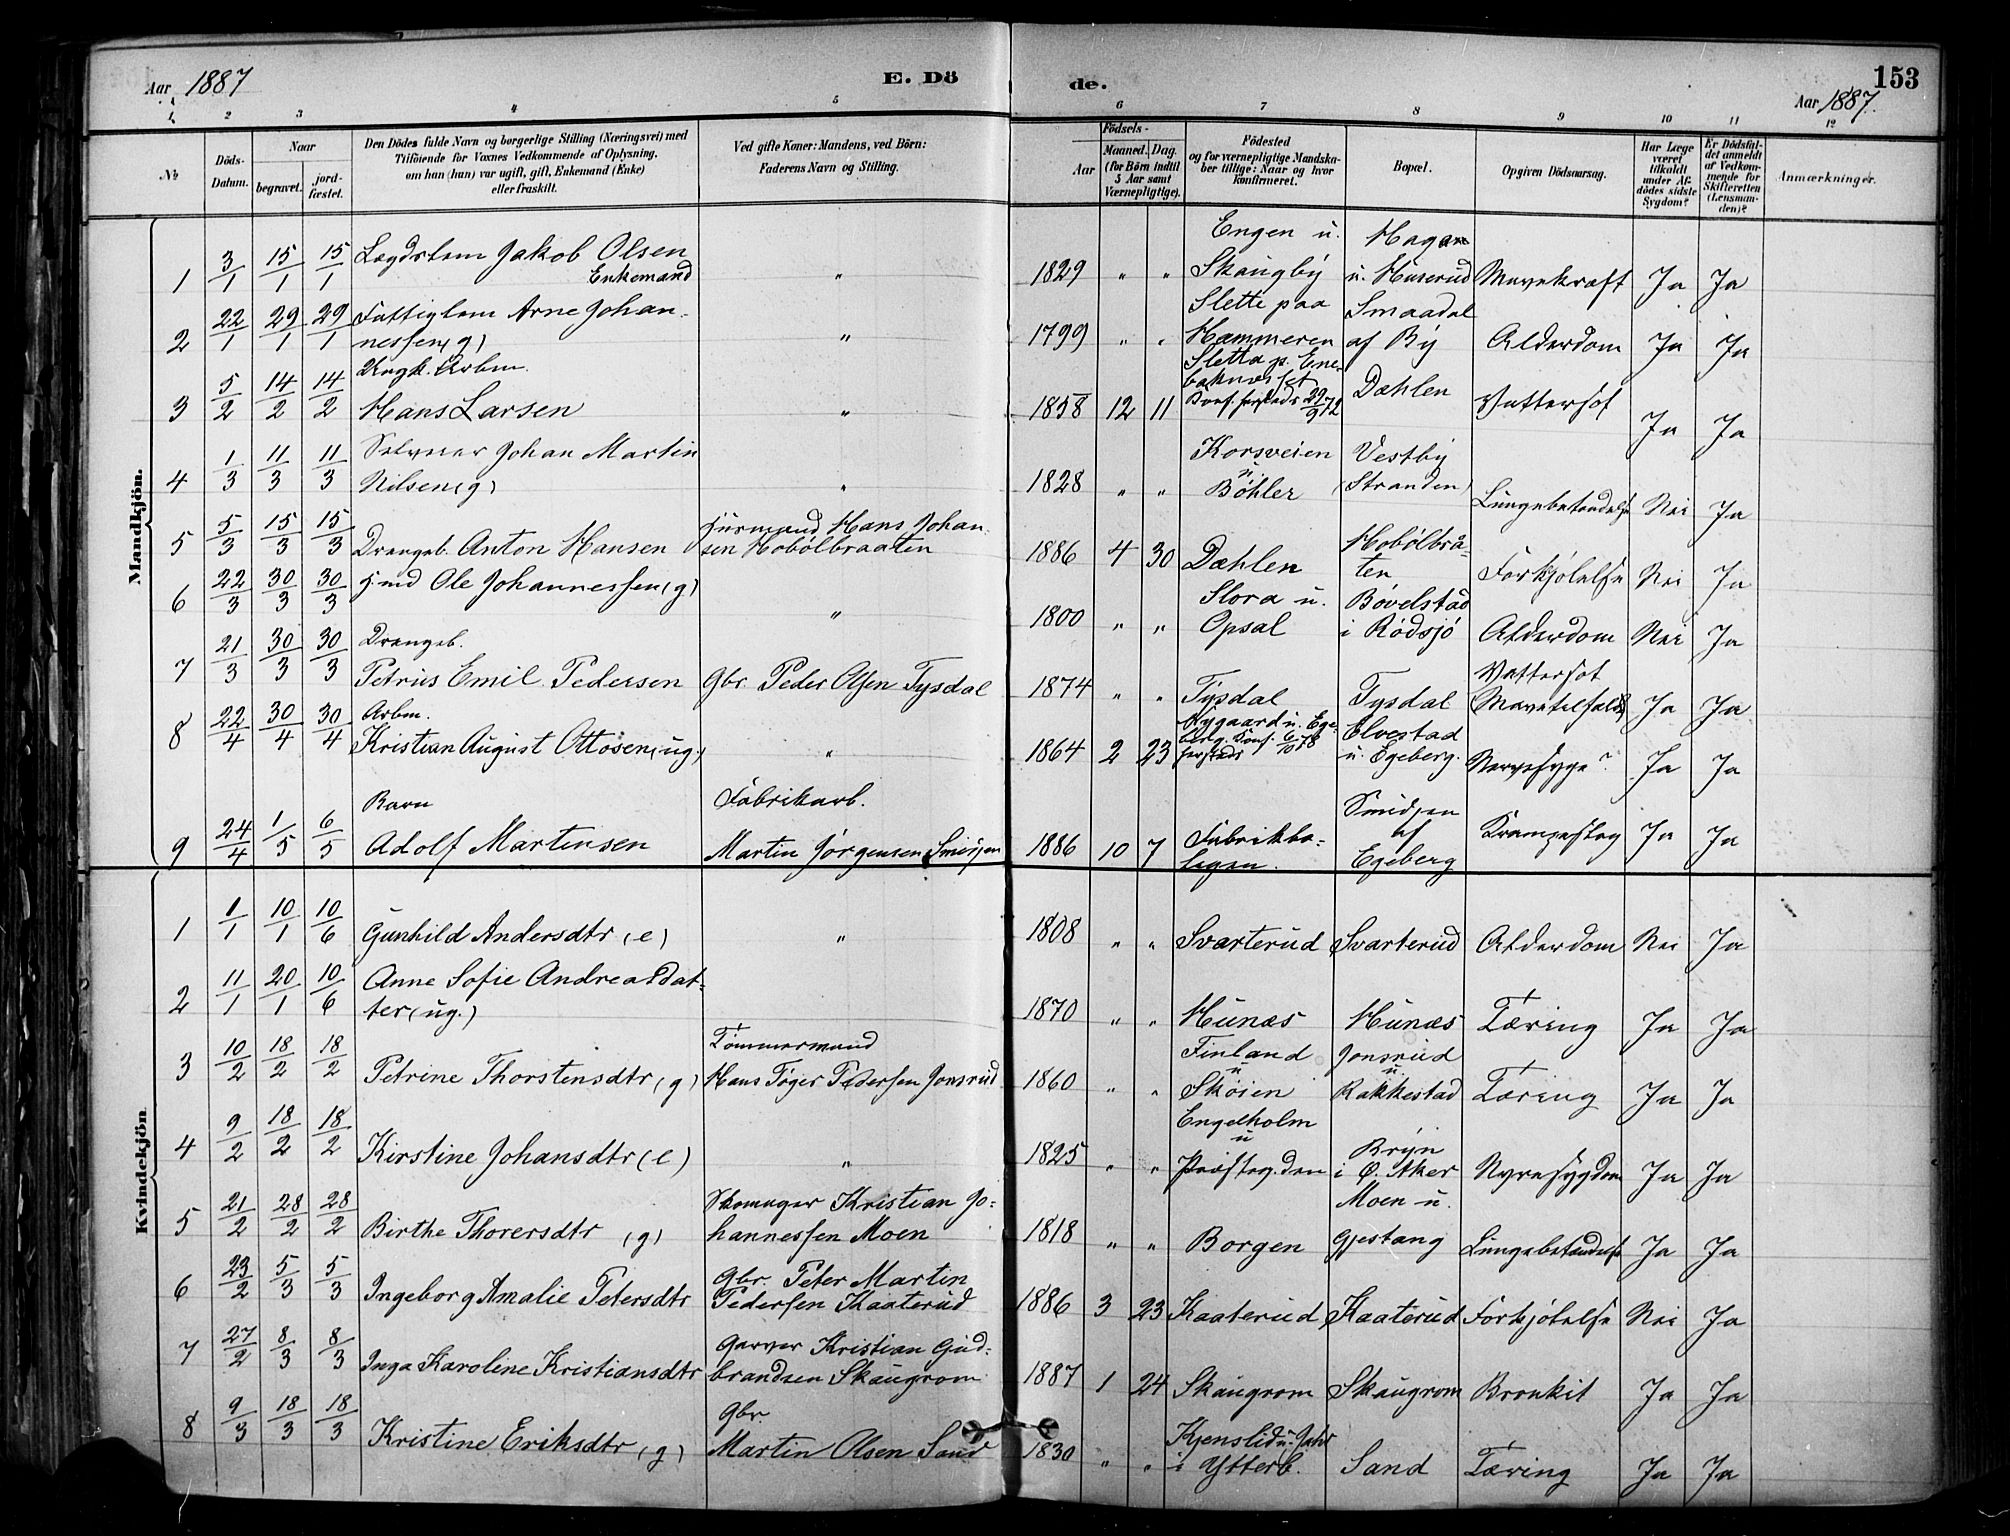 Aar 1887
E. Dö
de.
153
Aar 1887.
1. 2 3 4 5 6 7 8 9 10 11 12
№
Döds-Datum.
Naar
begravet.
jord-fæstet.
Den Dödes fulde Navn og borgerlige Stilling (Næringsvei) med
Tilföiende for Voxnes Vedkommende af Oplysning,
om han (hun) var ugift, gift, Enkemand (Enke)
eller fraskilt.
Ved gifte Koner: Mandens, ved Börn:
Faderens Navn og Stilling.
Födsels-
Aar
Maaned. Dag.
(for Börn indtil
5 Aar samt
Værnepligtige).
Födested
og for værnepligtige Mandska-
ber tillige: Naar og hvor
konfirmeret.
Bopæl.
Opgiven Dödsaarsag.
Har Læge
været
tilkaldt
under Af-
dödes sidste
Sygdom?
Er Dödsfal-
det anmeldt
af Vedkom-
mende for
Skifteretten
(Lensman-
den)?
Anmærkninger.
Mandkjön.
1 3/1 15/1 15/1 Lægdslem Jakob Olsen Enkemand " 1829 " " Engen u. Skaugby Hagan u. Huserud Mavekræft Ja Ja
2 22/1 29/1 29/1 Fattiglem Arne Johannessen (g) " 1799 " " Slette paa Hammeren Smaadal af By Alderdom Ja Ja
3 5/2 14/2 14/2 Ungk. Arbm. Hans Larsen " 1858 12 11 Sletta p. Enebaknesset Konf. 29/9 72 Dæhlen Vattersot Ja Ja
4 1/3 11/3 11/3 Johan Martin Nilsen (g) " 1828 " " Korsveien u. Böhler Vestby (Stranden) Lungebetændelse Nei Ja
5 5/3 15/3 15/3 Drengeb. Anton Hansen Hans Johansen Hobölbraaten 1886 4 30 Dæhlen Hobölbråten Forkjölelse Nei Ja
6 22/3 30/3 30/3 Ole Johannessen (g) " 1800 " " Slora u. Opsal Bövelstad i Rödsjö Alderdom Nei Ja
7 21/3 30/3 30/3 Drengeb. Petrus Emil Pedersen Gbr. Peder Olsen Tysdal 1874 " " Tysdal Tysdal Vattersot Ja Ja
8 22/4 30/4 30/4 Arbm. Kristian August Ottosen (ug.) " 1864 2 23 Nygaard u. Egeberg. Konf. 6/10 78 Elvestad u. Egeberg. Nervesyge? Ja Ja
9 24/4 1/5 6/5 Barn Adolf Martinsen Fabrikarb. Martin Jörgensen Smidjen 1886 10 7 Fabrikboligen. Smidjen af Egeberg Krampeslag Ja Ja
Kvindekjön
1 1/1 10/1 10/6 Gunhild Andersdtr (e) " 1808 " " Svarterud Svarterud Alderdom Nei Ja
2 11/1 20/1 10/6 Anne Sofie Andreasdatter (ug.) 1870 " " Hunæs Hunæs Tæring Ja Ja
3 10/2 18/2 18/2 Petrine Thorstensdtr (g) Tömmermand Hans Töger Pedersen Jonsrud 1860 " " Finland u Sköien Jonsrud u. Rakkestad Tæring Ja Ja
4 9/2 18/2 18/2 Kirstine Johansdtr (e) " 1825 " " Engelholm u Præstegden Bryn i Ö. Aker Nyresygdom Ja Ja
5 21/2 28/2 28/2 Birthe Thorersdtr (g) Skomager Kristian Johannessen Moen 1818 " " Borgen Moen u. Gjestang Lungebetændelse Ja Ja
6 23/2 5/3 5/3 Ingeborg Amalie Petersdtr Gbr. Peter Martin Pedersen Kaaterud 1886 3 23 Kaaterud Kaaterud Forkjölelse Nei Ja
7 27/2 8/3 8/3 Inga Karoline Kristiansdtr Garver Kristian Gudbrandsen Skaugrom 1887 1 24 Skaugrom Skaugrom Bronkit Ja Ja
8 9/3 18/3 18/3 Kristine Eriksdtr (g) Gbr. Martin Olsen Sand 1830 " " Kjenslid u. i Ytterb. Sand Tæring Ja Ja